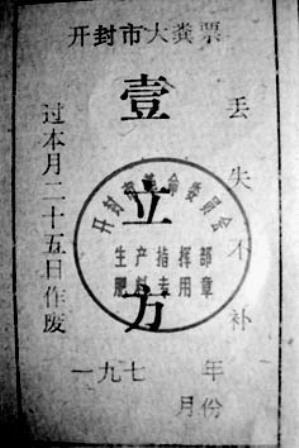 开封市大粪票
壹立方
丢失不补
过本月二十五日作废
开封市革命委员会
生产指挥部
肥料专用章
一九七 年
月份